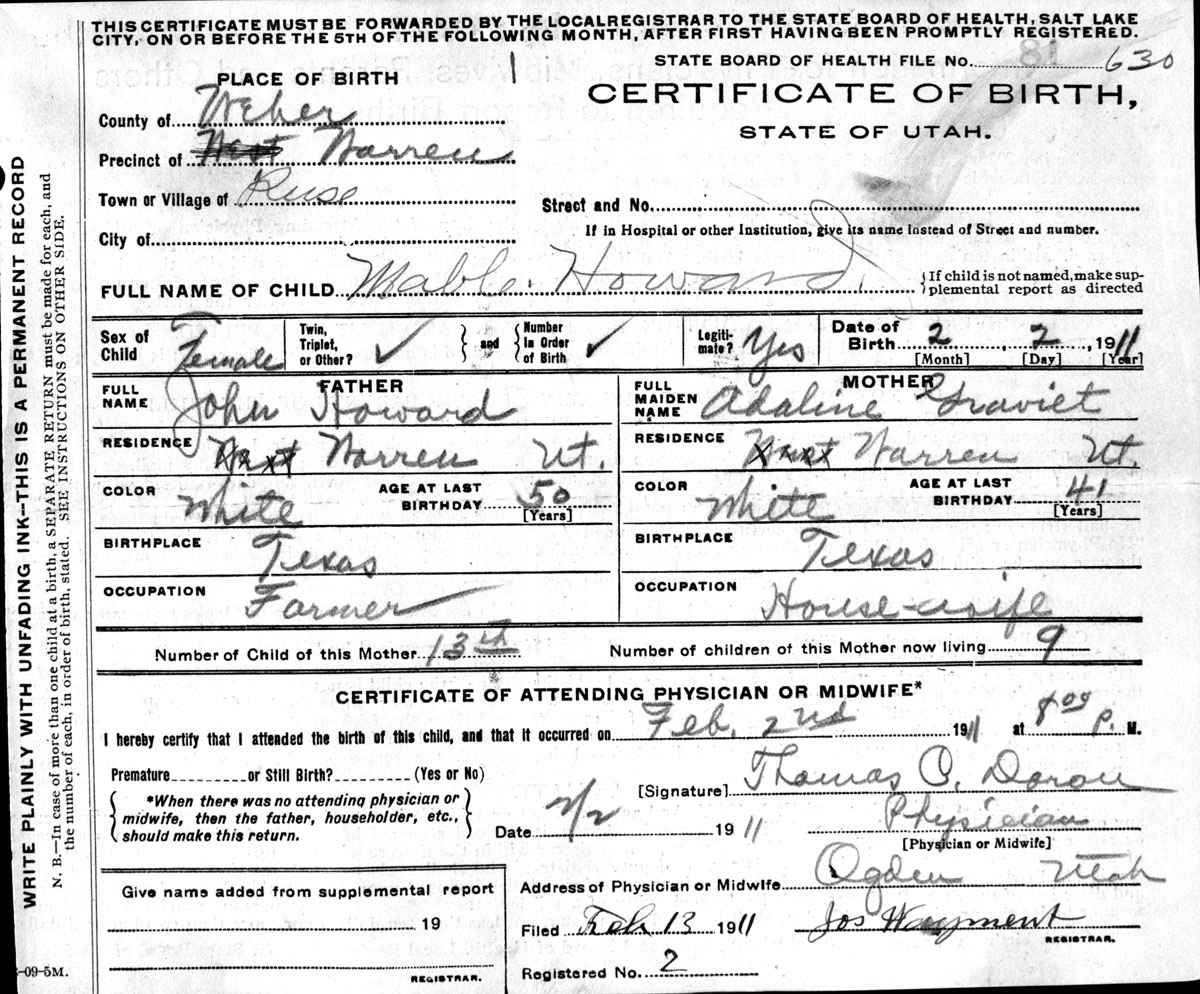 THIS CERTIFICATE MUST BE FORWARDED BY THE LOCAL REGISTRAR TO THE STATE BOARD OF HEALTH, SALT LAKE
CITY, ON OR BEFORE THE 5TH OF THE FOLLOWING MONTH, AFTER FIRST HAVING BEEN PROMPTLY REGISTERED.
STATE BOARD OF HEALTH FILE No. 81 630
PLACE OF BIRTH 1
CERTIFICATE OF BIRTH,
STATE OF UTAH.
County of Weber
Precinct of West Warren
Town or Village of
Street and No.
If in Hospital or other Institution, give its name instead of Street and number.
City of
FULL NAME OF CHILD Mable Howard
{If child is not named, make sup-
plemental report as directed
Sex of Child Female
Twin, Triplet, or Other? ✓
} and {
Number In Order of Birth ✓
Legiti-mate? Yes
Date of Birth 2, 2, 1911
[Month] [Day] [Year]
FATHER
FULL NAME John Howard
MOTHER
FULL MAIDEN NAME Adaline Graviet
RESIDENCE West Warren Ut.
RESIDENCE West Warren Ut.
COLOR White AGE AT LAST BIRTHDAY 50 [Years]
COLOR White AGE AT LAST BIRTHDAY 41 [Years]
BIRTHPLACE Texas
BIRTHPLACE Texas
OCCUPATION Farmer
OCCUPATION House-wife
Number of Child of this Mother 13th
Number of children of this Mother now living 9
CERTIFICATE OF ATTENDING PHYSICIAN OR MIDWIFE*
I hereby certify that I attended the birth of this child, and that it occurred on Feb, 2nd 1911 at 8 00 p. M.
Premature or Still Birth? (Yes or No)
[Signature] Thomas C. Doron
*When there was no attending physician or
midwife, then the father, householder, etc.,
should make this return.
Date 2/2 1911
Physician
[Physician or Midwife]
Address of Physician or Midwife Ogden Utah
Give name added from supplemental report
19
REGISTRAR.
Filed Feb 13 1911
Jos Wayment
REGISTRAR.
Registered No. 2
-09-5M.
WRITE PLAINLY WITH UNFADING INK—THIS IS A PERMANENT RECORD
N. B.—In case of more than one child at a birth, a SEPARATE RETURN must be made for each, and
the number of each, in order of birth, stated. SEE INSTRUCTIONS ON OTHER SIDE.